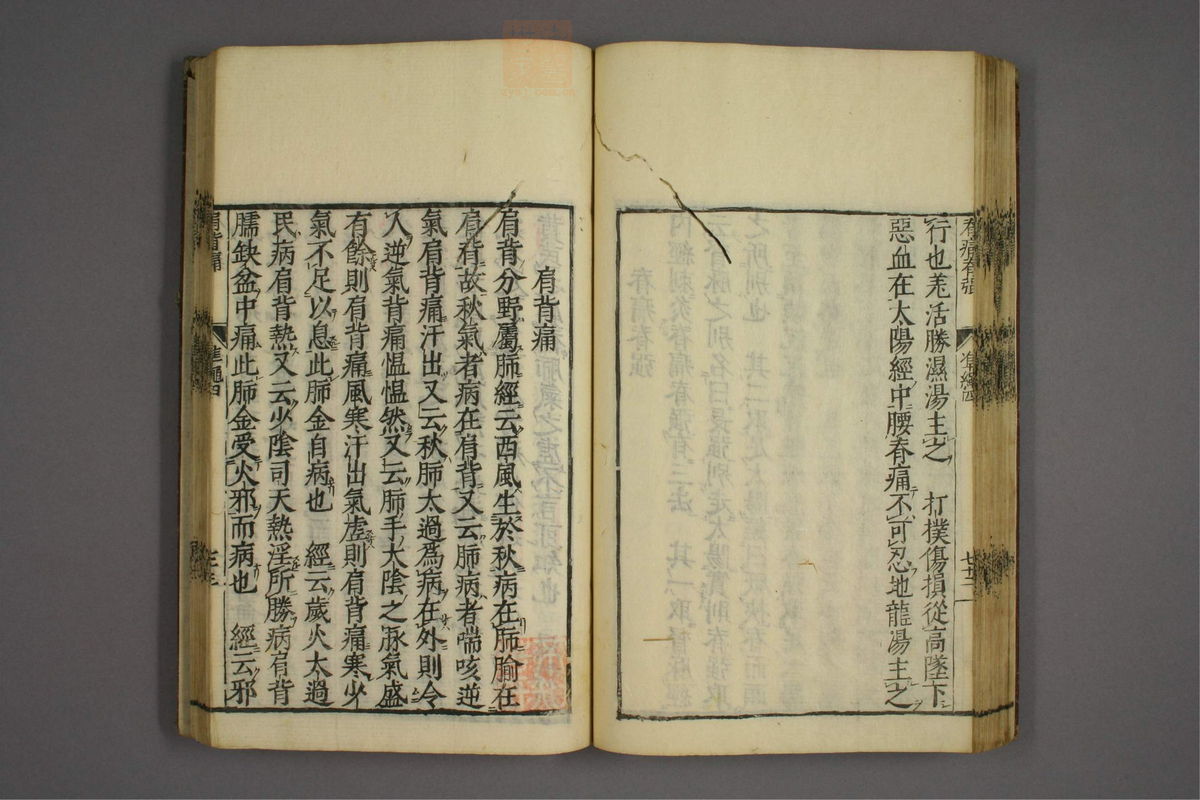 行也羌活勝濕湯主之　打撲傷損從高墜下
惡血在太陽經中腰脊痛不可忍地龍湯主之
肩背痛
肩背分野屬肺經云西風生於秋病在肺腧在
肩背故秋氣者病在肩背又云肺病者喘咳逆
氣肩背痛汗出又云秋肺太過爲病在外則令
人逆氣背痛慍慍然又云肺手太陰之脉氣盛
有餘則肩背痛風寒汗出氣虛則肩背痛寒少
氣不足以息此肺金自病也　經云歲火太過
民病肩背熱又云少陰司天熱淫所勝病肩背
臑缺盆中痛此肺金受火邪而病也　經云邪
肩背痛
準繩四